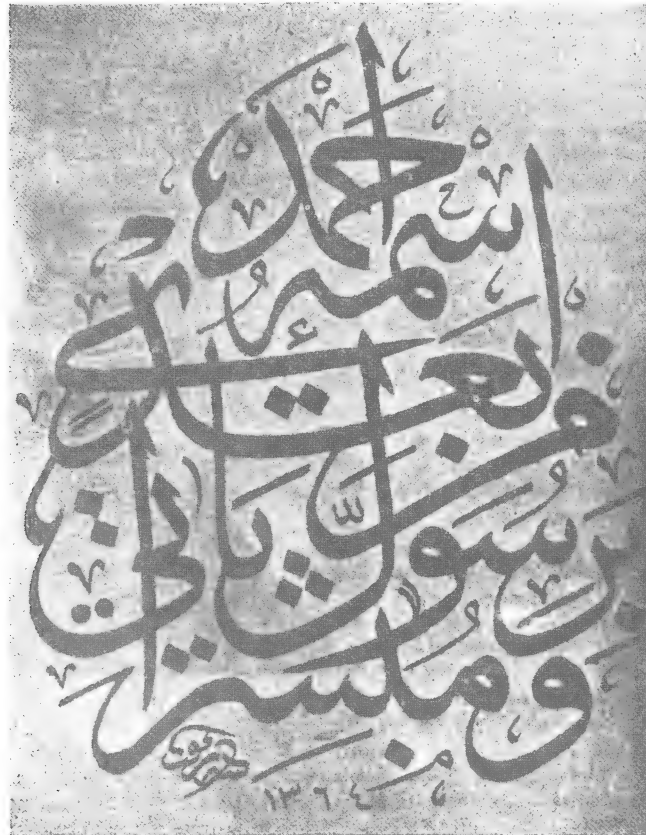 ومبشرا
برسول يأتي
من بعدي
اسمه
احمد
١٣٦٤